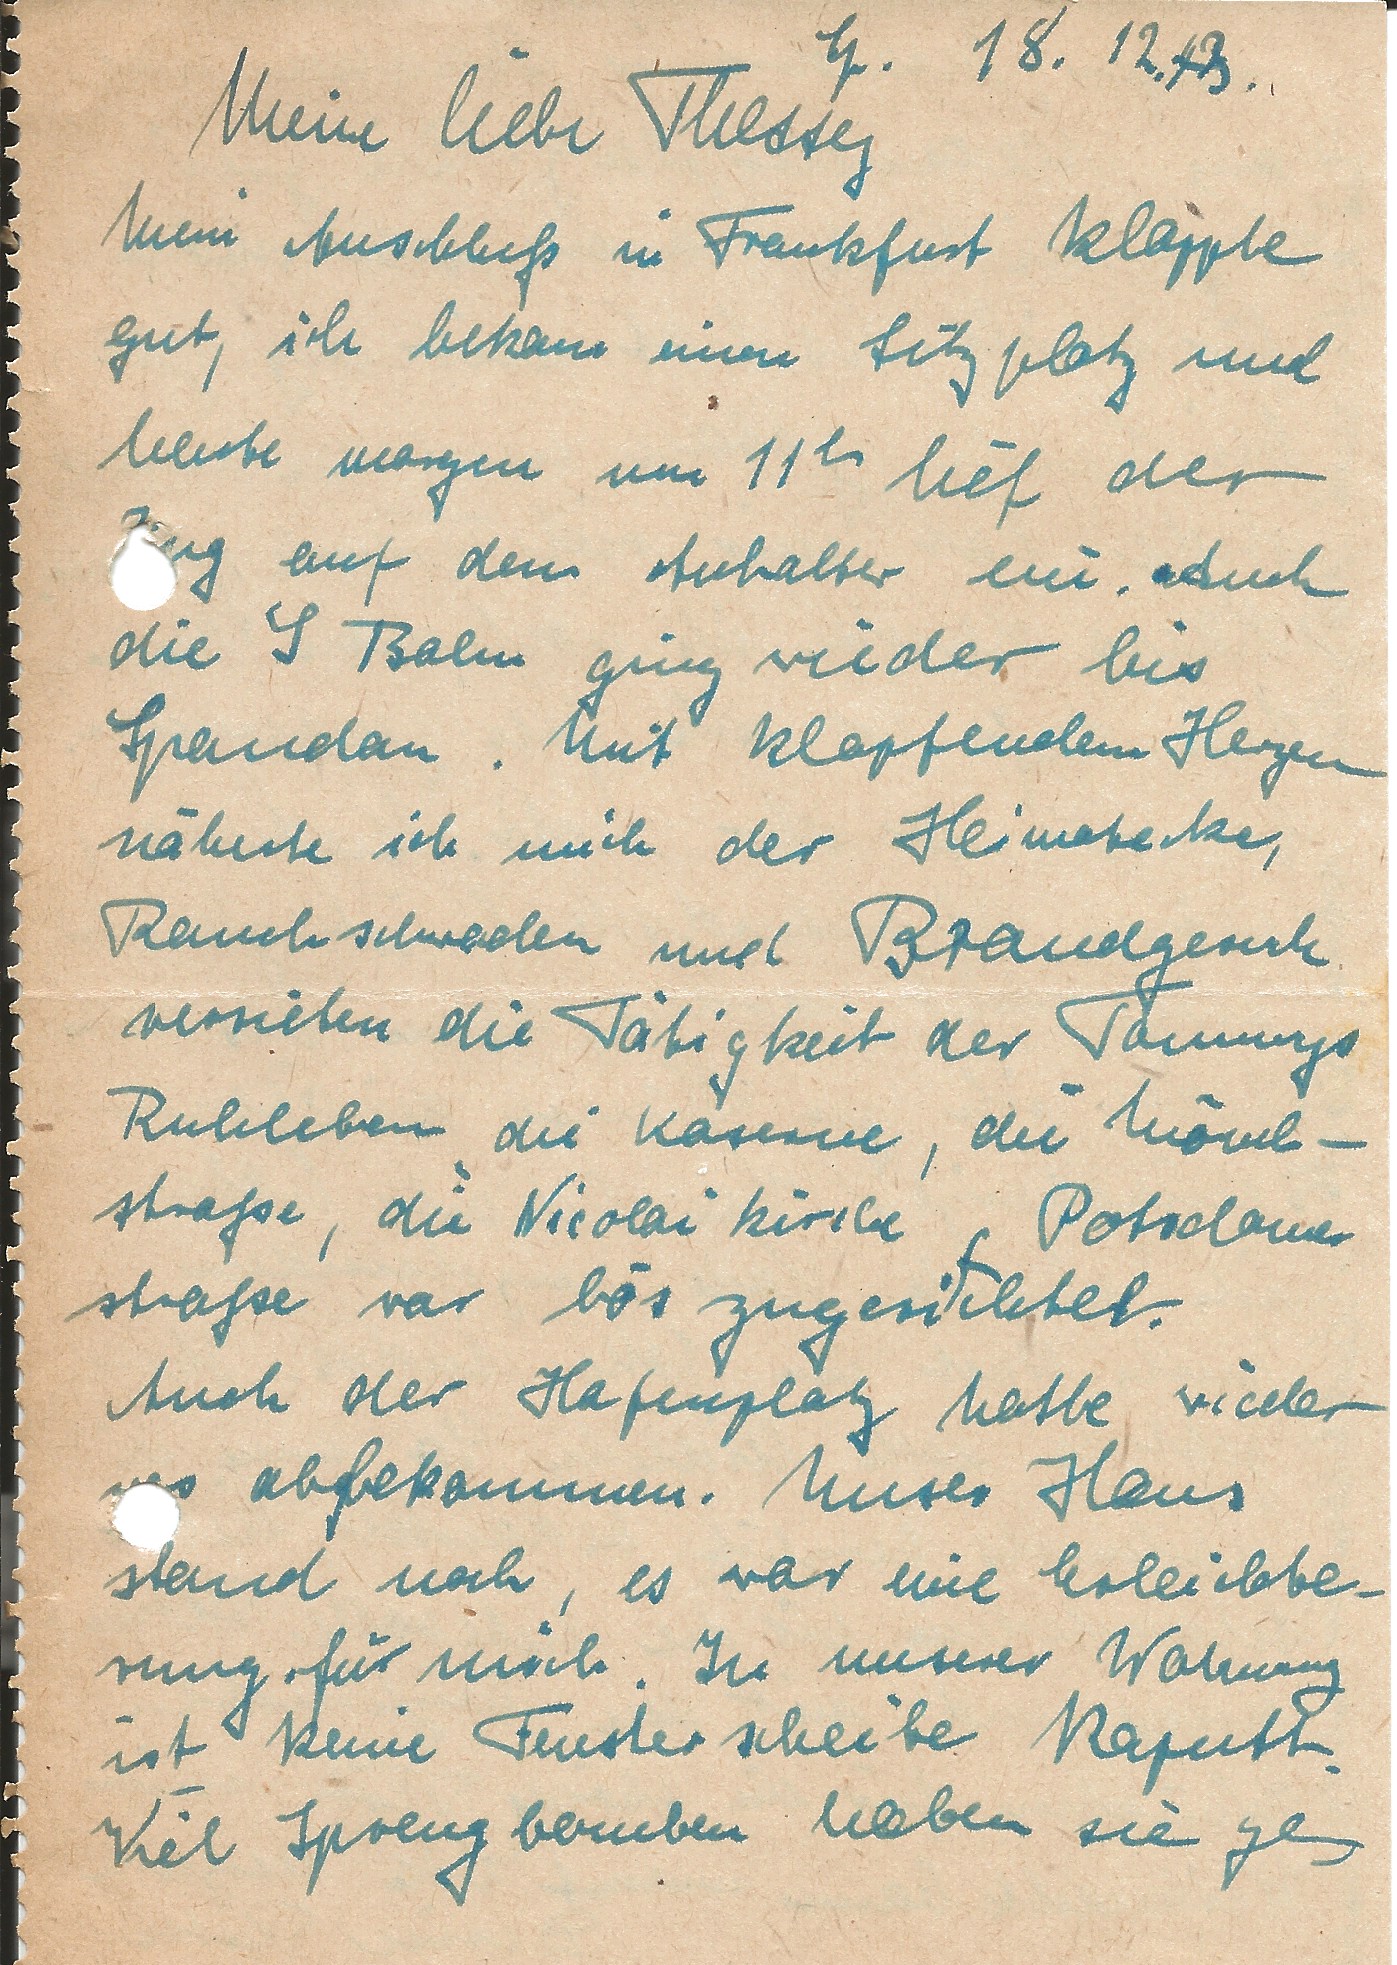 Sp. 18. 12. 43.
Meine liebe Thessy
Mein Anschluß in Frankfurt klappte
gut, ich bekam einen Sitzplatz und
heute morgen um 11h lief der
Zug auf dem Anhalter ein. Auch
die S Bahn ging wieder bis
Spandau. Mit klopfendem Herzen
näherte ich mich der Heimatecke,
Rauchschwaden und Brandgeruch
verrieten die Tätigkeit der Tommys
Ruhleben, die Kaserne, die Mönch-
straße, die Nicolai kirche, Potsdamer
straße war bös zugerichtet.
Auch der Hafenplatz hatte wieder
was abbekommen. Unser Haus
stand noch, es war eine Erleichte-
rung für mich. In unserer Wohnung
ist keine Fensterscheibe kaputt.
Viel Sprengbomben haben sie ge